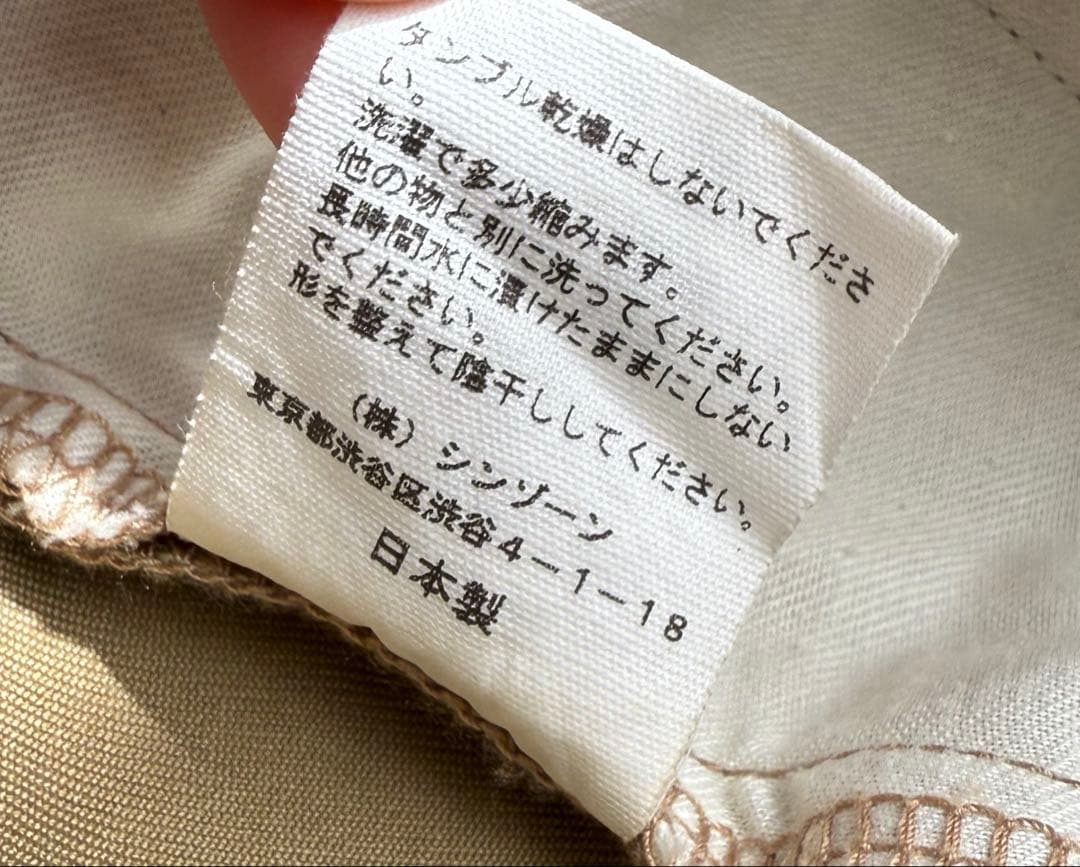 タンブル乾燥はしないでくださ
い。
洗濯で多少縮みます。
他の物と別に洗ってください。
長時間水に漬けたままにしない
でください。
形を整えて陰干ししてください。
（株）シンゾーン
東京都渋谷区渋谷4－1－18
日本製